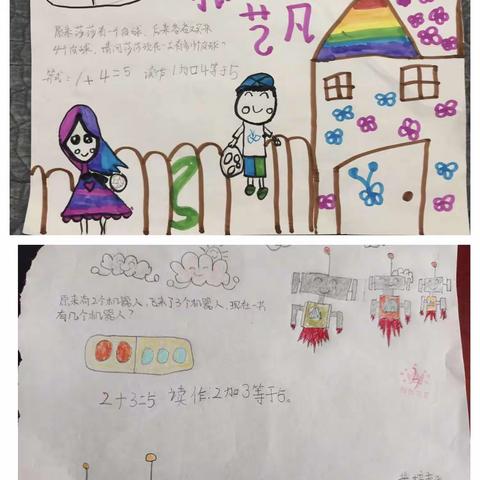 原来莎莎有一个皮球，后来爸爸又买来
4个皮球，请问莎莎现在一共有多少个皮球？
算式：1+4=5 读作1加4等于5
凡
艺
原来有2个机器人，飞来了3个机器人，现在一共
有几个机器人？
2+3=5 读作：2加3等于5。